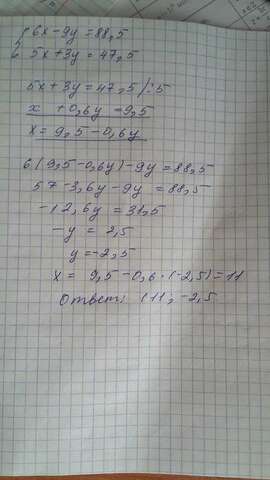 { 6x - 9y = 88,5
5x + 3y = 47,5
5x + 3y = 47,5 /:5
x + 0,6y = 9,5
x = 9,5 - 0,6y
6(9,5 - 0,6y) - 9y = 88,5
57 - 3,6y - 9y = 88,5
-12,6y = 31,5
-y = 2,5
y = -2,5
x = 9,5 - 0,6 · (-2,5) = 11
Ответ: (11; -2,5